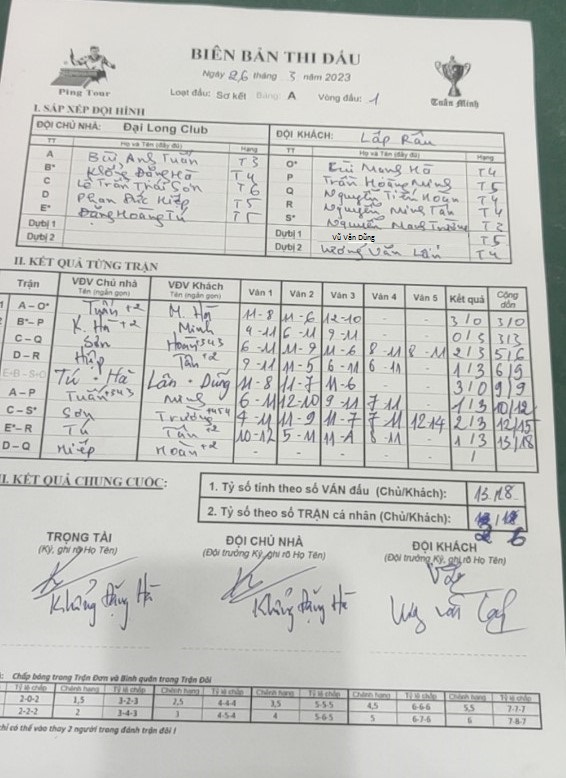 BIÊN BẢN THI ĐẤU
Ngày 26 tháng 3 năm 2023
Ping Tour
Loạt đấu: Sơ kết Bảng: A Vòng đấu: 1
Tuấn Minh
I. SẮP XẾP ĐỘI HÌNH
ĐỘI CHỦ NHÀ: Đại Long Club ĐỘI KHÁCH: Lắp Râu
TT Họ và Tên (đầy đủ) Hạng TT Họ và Tên (đầy đủ) Hạng
A Bùi Anh Tuấn T3 O* Bùi Mạnh Hà T4
B* Khổng Đăng Hà T4 P Trần Hoàng Minh T5
C Lê Trần Thái Sơn T6 Q Nguyễn Tiến Hoàn T4
D Phan Đắc Hiệp T5 R Nguyễn Minh Tân T4
E* Đặng Hoàng Tú T5 S* Nguyễn Mạnh Trường T3
Dựbị 1 Dựbị 1 Vũ Văn Dũng T5
Dựbị 2 Dựbị 2 Lương Văn Lân T4
II. KẾT QUẢ TỪNG TRẬN
Trận VĐV Chủ nhà Tên (ngắn gọn) VĐV Khách Tên (ngắn gọn) Ván 1 Ván 2 Ván 3 Ván 4 Ván 5 Kết quả Cộng dồn
A – O* Tuấn M. Hà 11-8 11-6 12-10 - - 3/0 3/0
B*– P K. Hà +2 Minh 9-11 6-11 9-11 - - 0/3 3/3
C – Q Sơn Hoàn +343 6-11 11-9 11-6 8-11 8-11 2/3 5/6
D – R Hiệp Tân +2 9-11 11-5 6-11 6-11 - 1/3 6/9
E+B – S+O Tú - Hà Lân - Dũng 11-8 11-7 11-6 3/0 9/9
A – P Tuấn +343 Minh 6-11 12-10 9-11 7-11 1/3 10/12
C – S* Sơn Trường +454 4-11 11-9 11-7 7-11 12-14 2/3 12/15
E*– R Tú Tân +2 10-12 5-11 11-1 8-11 1/3 13/18
D – Q Hiệp Hoàn +2 - - - - - /
KẾT QUẢ CHUNG CUỘC:
1. Tỷ số tính theo số VÁN đấu (Chủ/Khách): 13/18
2. Tỷ số theo số TRẬN cá nhân (Chủ/Khách): 2 6
TRỌNG TÀI ĐỘI CHỦ NHÀ ĐỘI KHÁCH
(Ký, ghi rõ Họ Tên) (Đội trưởng Ký, ghi rõ Họ Tên) (Đội trưởng Ký, ghi rõ Họ Tên)
Khổng Đăng Hà Khổng Đăng Hà
Chấp bóng trong Trận Đơn và Bình quân trong Trận Đôi
Tỷ lệ chấp Chênh hạng Tỷ lệ chấp Chênh hạng Tỷ lệ chấp Chênh hạng Tỷ lệ chấp Chênh hạng Tỷ lệ chấp Chênh hạng Tỷ lệ chấp
2-0-2 1,5 3-2-3 2,5 4-4-4 3,5 5-5-5 4,5 6-6-6 5,5 7-7-7
2-2-2 2 3-4-3 3 4-5-4 4 5-6-5 5 6-7-6 6 7-8-7
chỉ có thể vào thay 2 người trong đánh trận đôi !